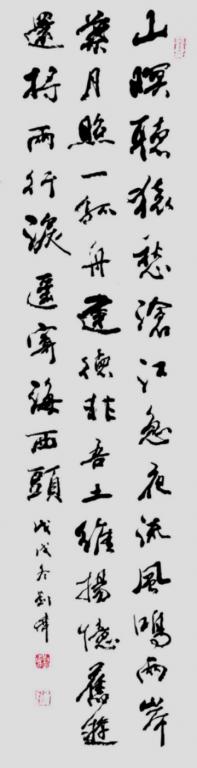 山暝聽猿愁滄江急夜流風鳴兩岸
葉月照一孤舟建德非吾土維揚憶舊遊
還將兩行淚遙寄海西頭
戊戌冬劉